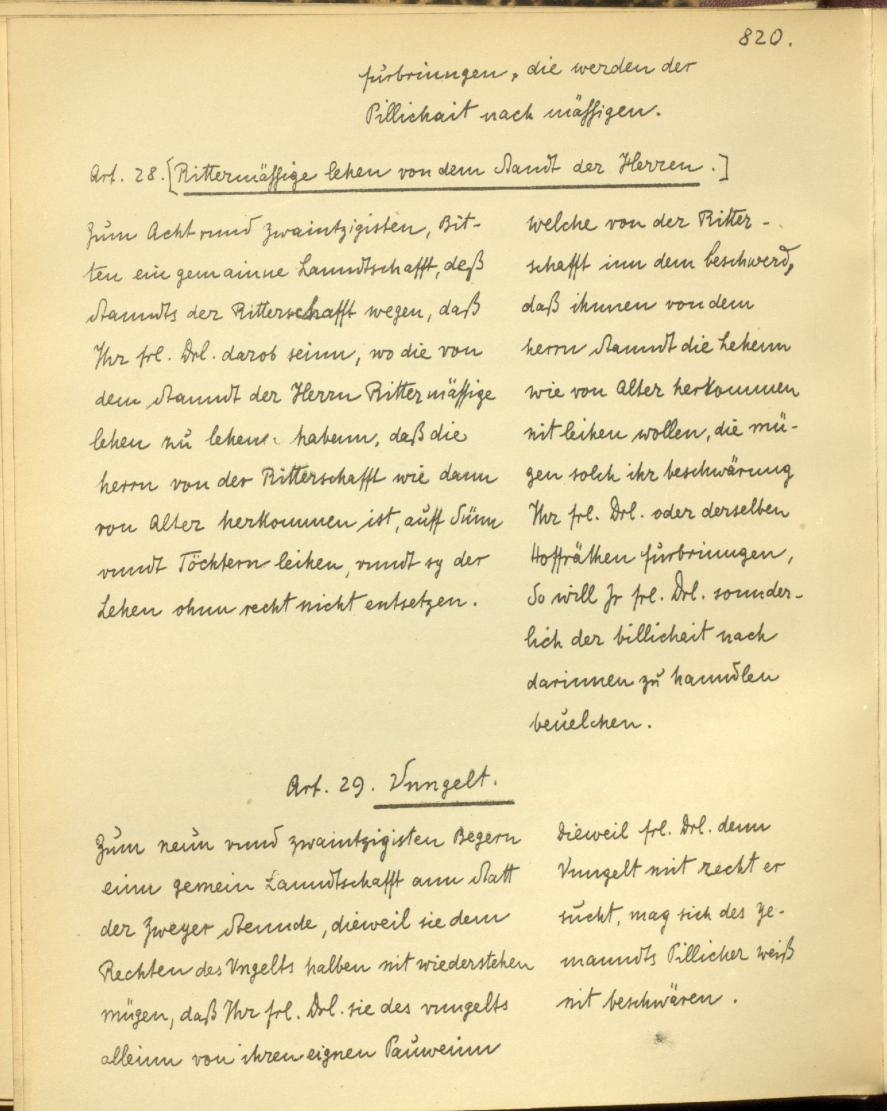 820.
fürbringen, die werden der
Pillichait nach mässigen.
Art. 28. [Rittermässige lehen von dem Standt der Herren.]
Zum Acht unnd zwaintzigisten, Bit-
ten ein gemainne Lanndtschafft, deß
Stanndts der Ritterschafft wegen, daß
Ihr frl. Drl. darob seinn, wo die von
dem Stanndt der Herrn Rittermässige
lehen zu lehenn habenn, daß die
herrn von der Ritterschafft wie dann
von Alter herkommen ist, auff Sünn
vnndt Töchtern leihen, vnndt sy der
Lehen ohnn recht nicht entsetzen.
Welche von der Ritter-
schafft inn dem beschwerd,
daß ihnnen von dem
herrn Stanndt die Lehenn
wie von Alter herkommen
nit leihen wollen, die mü-
gen solch ihr beschwärung
Ihr frl. Drl. oder derselben
Hoffräthen fürbringen,
So will Ir frl. Drl. sonnder-
lich der billichait nach
darinnen zu hanndlen
beuelchen.
Art. 29. Vnngelt.
Zum neun vnnd zwaintzigisten Begern
einn gemein Lanndtschafft ann Statt
der Zweyer Stennde, dieweil sie dem
Rechten des Vngelts halben nit wiederstehen
mügen, daß Ihr frl. Drl. sie des vnngelts
alleinn von ihren eignen Pauweinn
Dieweil frl. Drl. denn
Vnngelt mit recht er
sucht, mag sich des ye-
manndts Pillicher weiß
nit beschwären.